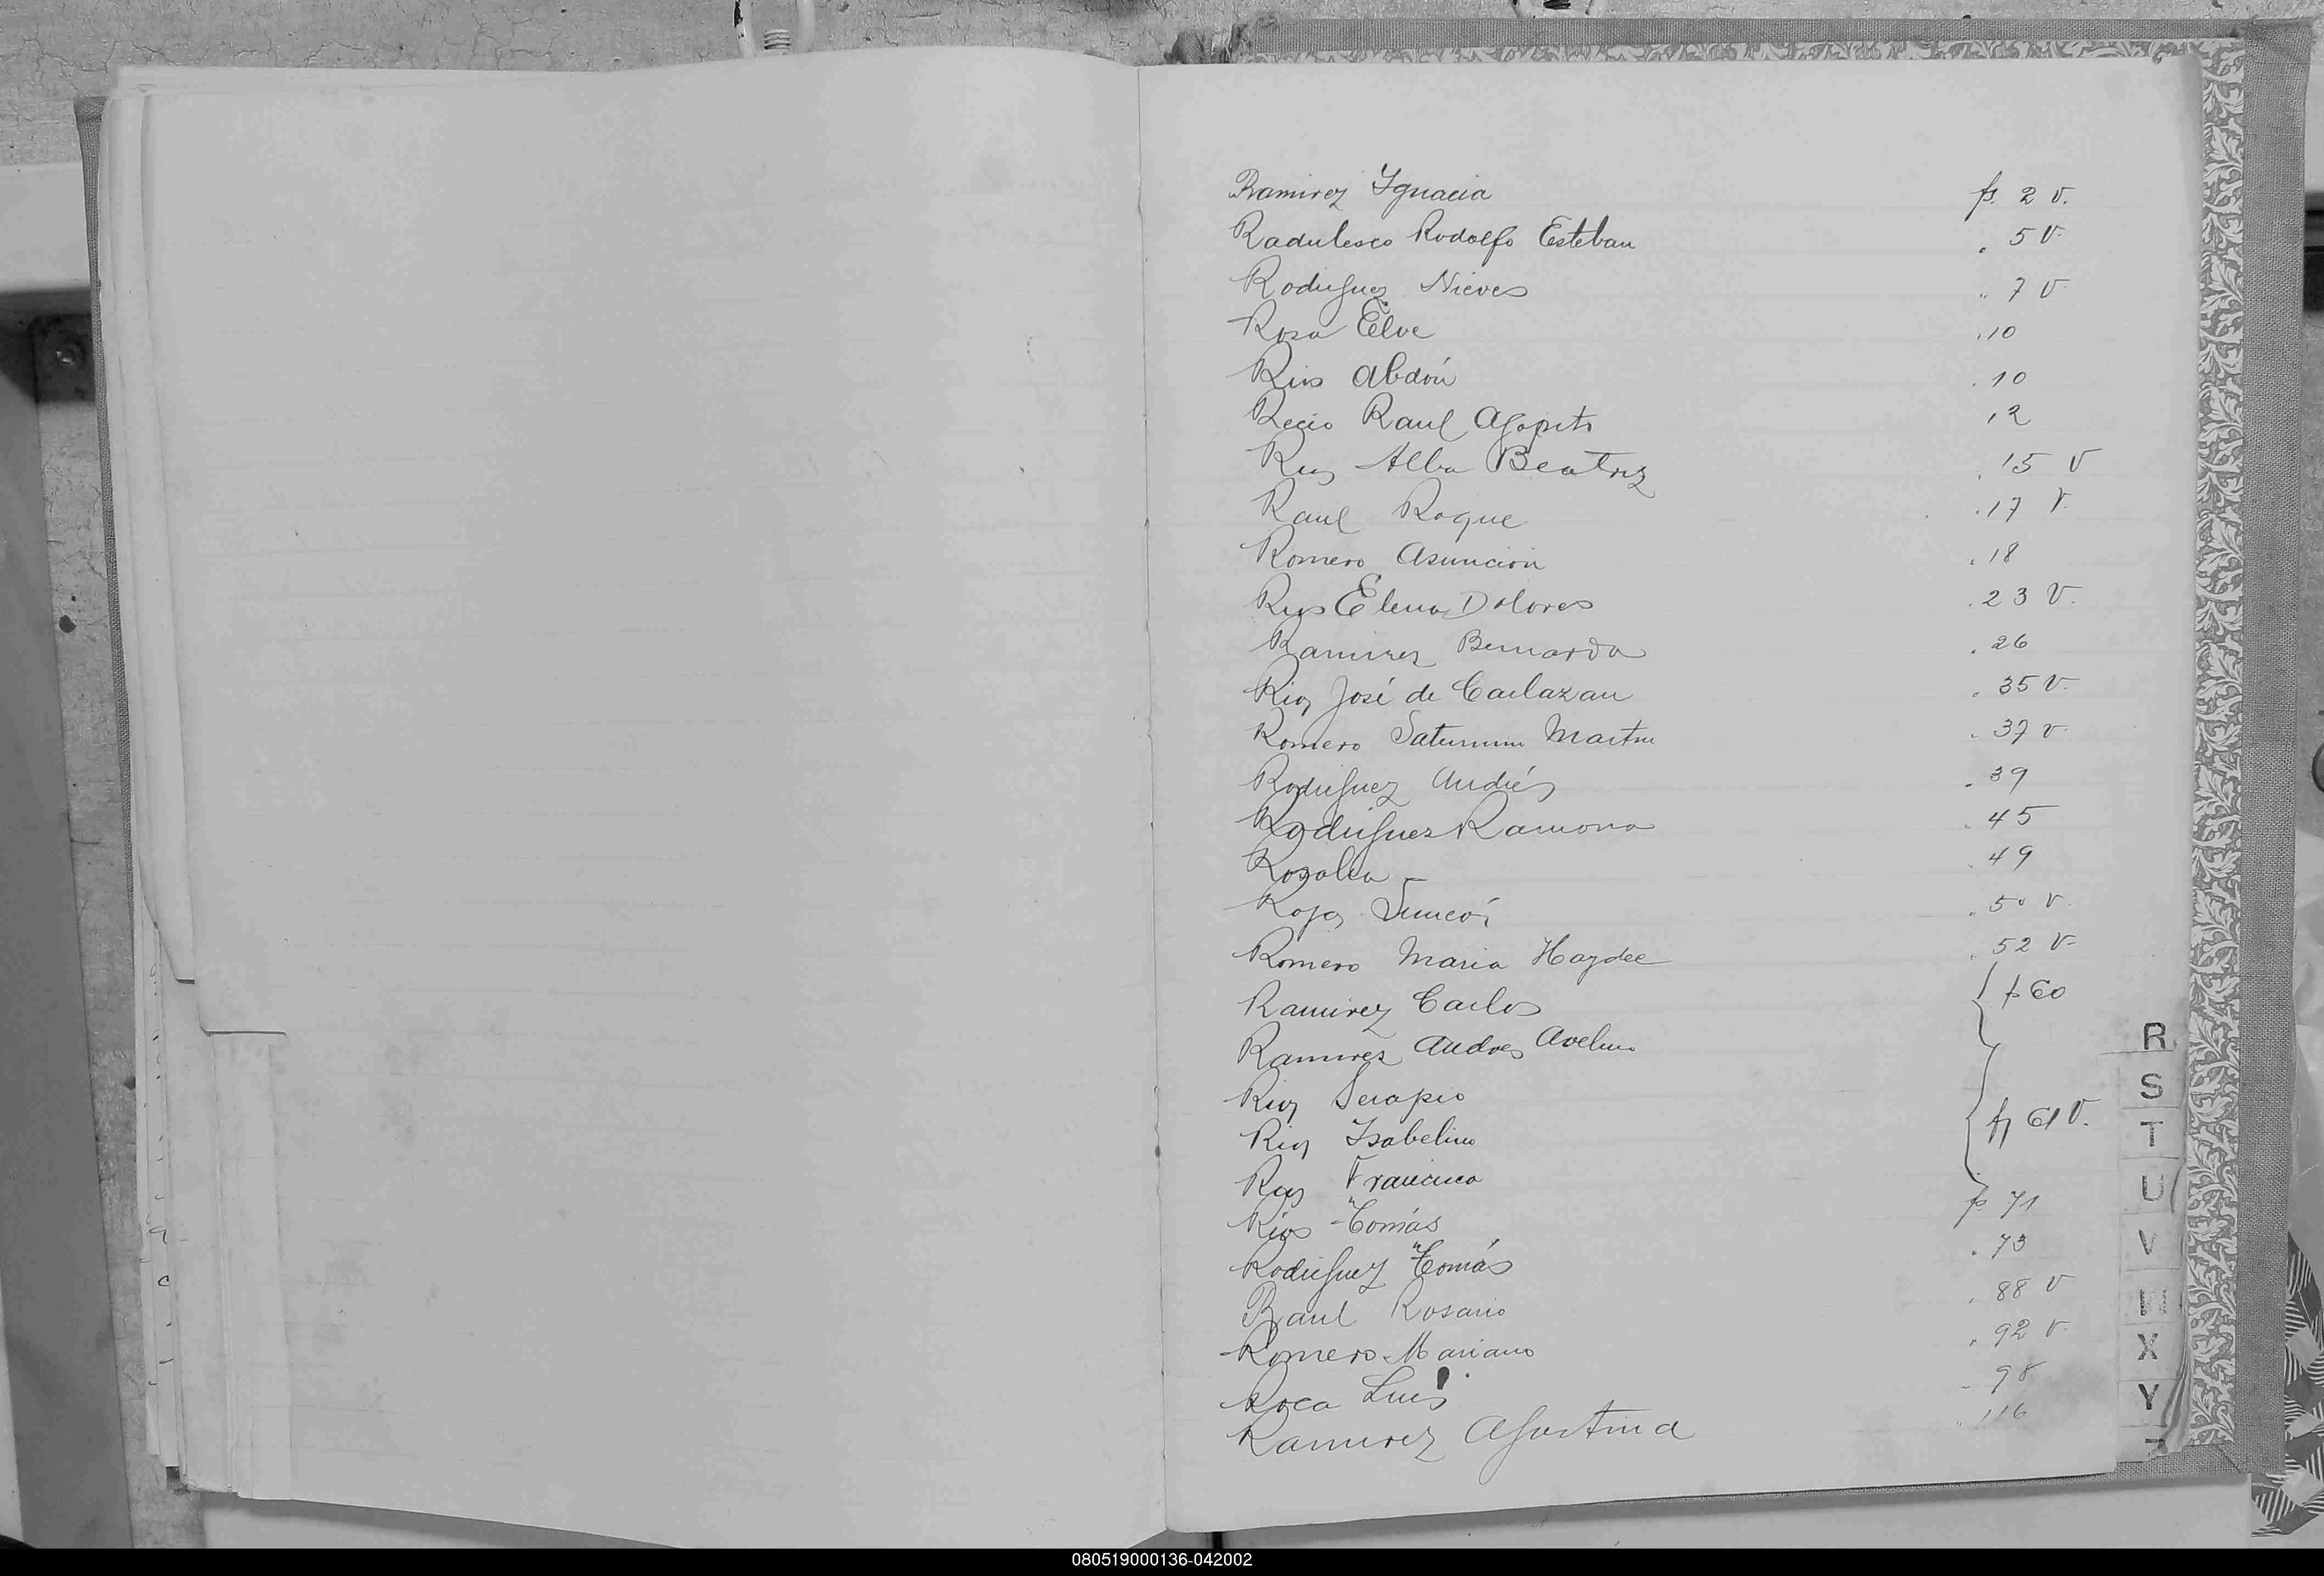 Ramirez Ignacia fs. 2 v.
Radulesco Rodolfo Esteban " 5 v.
Rodriguez Nieves " 7 v
Rosa Elve " 10
Rios Abdón " 10
Recio Raul Agapito 12
Rios Alba Beatriz " 15 v
Raul Roque " 17 v.
Romero Asunción " 18
Rios Elena Dolores " 23 v.
Ramirez Bernarda " 26
Rios José de Carlazan " 35 v.
Romero Saturnino Martin " 37 v.
Rodriguez Andrés " 39
Rodriguez Ramona " 45
Rosalia — " 49
Rojas Simeón " 50 v
Romero Maria Haydee " 52 v.
Ramirez Carlos } fs 60
Ramirez Andres Avelino
Rios Serapio
Rios Isabelino } fs 61 v.
Rios Francisca
Rios Tomás fs 71
Rodriguez Tomás " 73
Raul Rosario " 88 v
Romero Mariano " 92 v.
Roca Luis " 98
Ramirez Agustina " 116
R
S
T
U
V
X
Y
Z
080519000136-042002